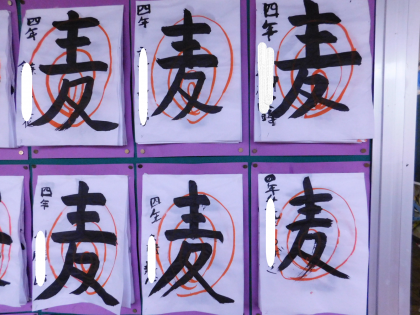 四年
麦
四年
麦
四年
麦
四年
麦
四年
麦
四年
麦